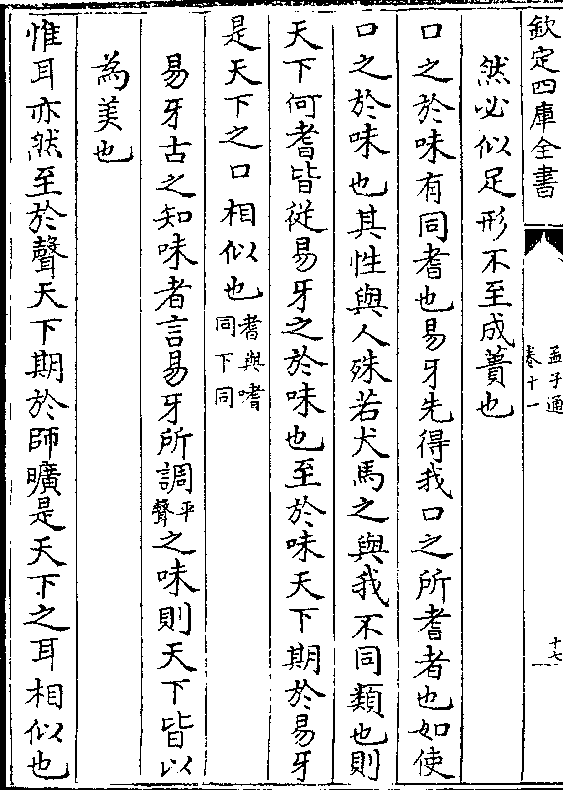 欽定四庫全書
孟子通
卷十一
十七
然必似足形不至成蕢也
口之於味有同耆也易牙先得我口之所耆者也如使
口之於味也其性與人殊若犬馬之與我不同類也則
天下何耆皆從易牙之於味也至於味天下期於易牙
是天下之口相似也耆與嗜同下同
易牙古之知味者言易牙所調平聲之味則天下皆以
為美也
惟耳亦然至於聲天下期於師曠是天下之耳相似也